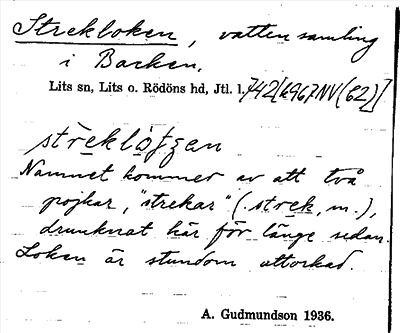 Strekloken, vattensamling
i Backen.
Lits sn, Lits o. Rödöns hd, Jtl. l. 742[6967NV(62)]
strek
Namnet kommer av att två
pojkar, "strekar" (strek, m.),
drunknat här för länge sedan.
Loken är stundom uttorkad.
A. Gudmundson 1936.